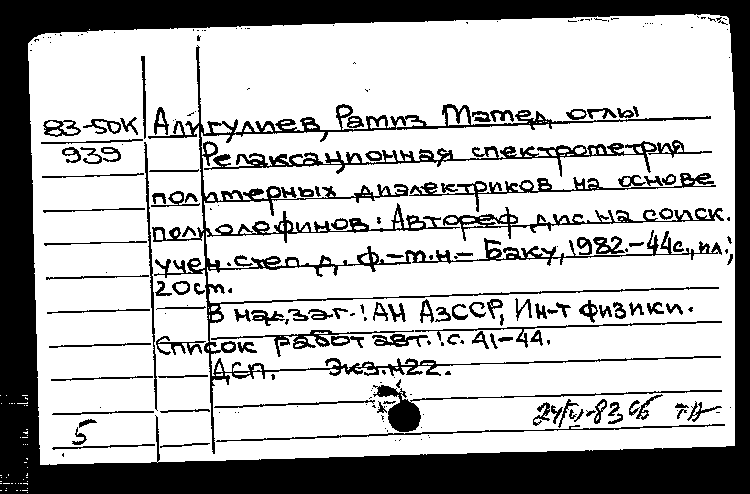 83-50К Алигулиев, Рамиз Мамед оглы
939 Релаксационная спектрометрия
полимерных диэлектриков на основе
полиолефинов: Автореф. дис. на соиск.
учен. степ. д. ф.-м.н. - Баку, 1982. - 44с., ил.;
20см.
В над.заг.: АН АзССР, Ин-т физики.
Список работ авт.: с. 41-44.
ДСП. Экз.N22.
5